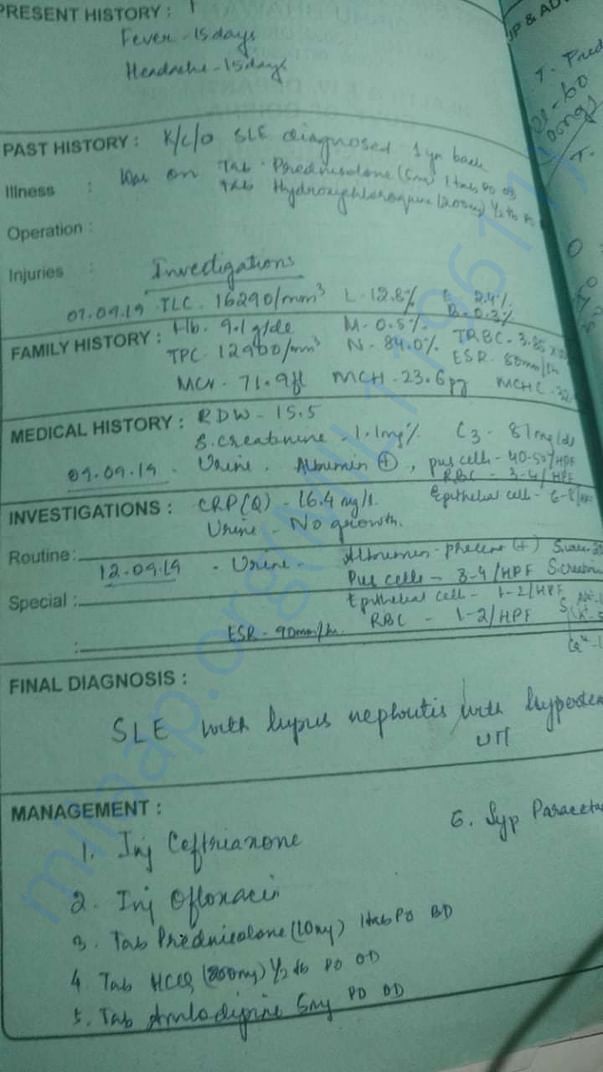 PRESENT HISTORY :
Fever - 15 days
Headache - 15 days
UP & AD
T. Pred
PAST HISTORY : K/c/o SLE diagnosed 1 yr back
Illness : Was on Tab. Prednisolone (5mg) 1 tab PO OD
Tab Hydroxychloroquine (200mg) 1/2 tb
Operation :
Injuries : Investigations
07.09.19 TLC - 16290/mm³ L - 12.8% E - 2.4%
B - 0.3%
FAMILY HISTORY : Hb. 9.1 g/dl M - 0.5% TRBC - 3.85
TPC 12900/mm³ N - 84.0% ESR - 80mm/hr
MCV - 71.9fl MCH - 23.6pg MCHC - 32
MEDICAL HISTORY : RDW - 15.5
S. creatinine - 1.1mg% C3 - 81mg/dl
09.09.19 - Urine. Albumin (+), pus cells - 40-50/HPF
RBC - 3-4/HPF
INVESTIGATIONS : CRP(Q) - 16.4 mg/l. Epithelial cell - 6-8/HPF
Urine - No growth.
Routine : 12.09.19 - Urine - Albumin - present (+)
Pus cells - 3-4/HPF S. creatinin
Special : Epithelial cell - 1-2/HPF
ESR - 90mm/hr. RBC - 1-2/HPF
FINAL DIAGNOSIS :
SLE with lupus nephritis with hyperten
UTI
MANAGEMENT :
1. Inj Ceftriaxone
6. Syp Paraceta
2. Inj Ofloxacin
3. Tab Prednisolone (10mg) 1 tab PO BD
4. Tab HCQ (200mg) 1/2 tb PO OD
5. Tab Amlodipine 5mg PO OD